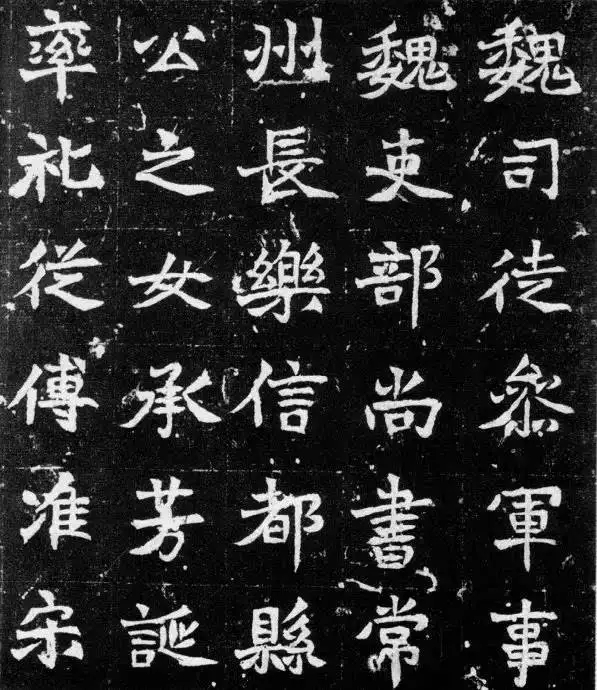 魏司徒參軍事
魏吏部尚書常
州長樂信都縣
公之女承芳誕
率礼從傅准宋